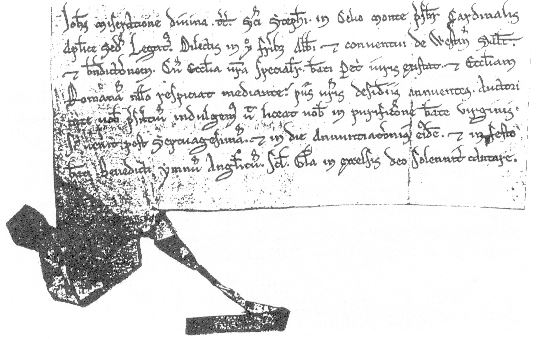 Johs miseratione divina. tt. Sci Stephi. in Celio monte psbr Cardinalis
Aplice Sed Legat. Dilectis in x frib Abbi & conventui de Westm Salt.
& bndictonem. Cu Ecclia vra specialit beati Pet iuris existat & Eccliam
Romana nllo respiciat mediante: piis vris desideriis annuentes. auctori
tate vob psentiu indulgem ut liceat vob in purificatione beate virginis.
si venit post Septuagesima. & in die annuntiationis eiusde. & in festo
beati Benedicti ymnu Anglicu. scil. Gla in excelsis deo solennit